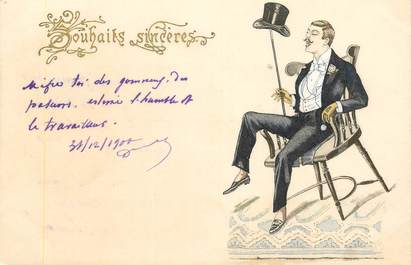 Souhaits sincères
Méfie toi des gommeux, des
poseurs. estime l'humble et
le travailleur.
31/12/1900